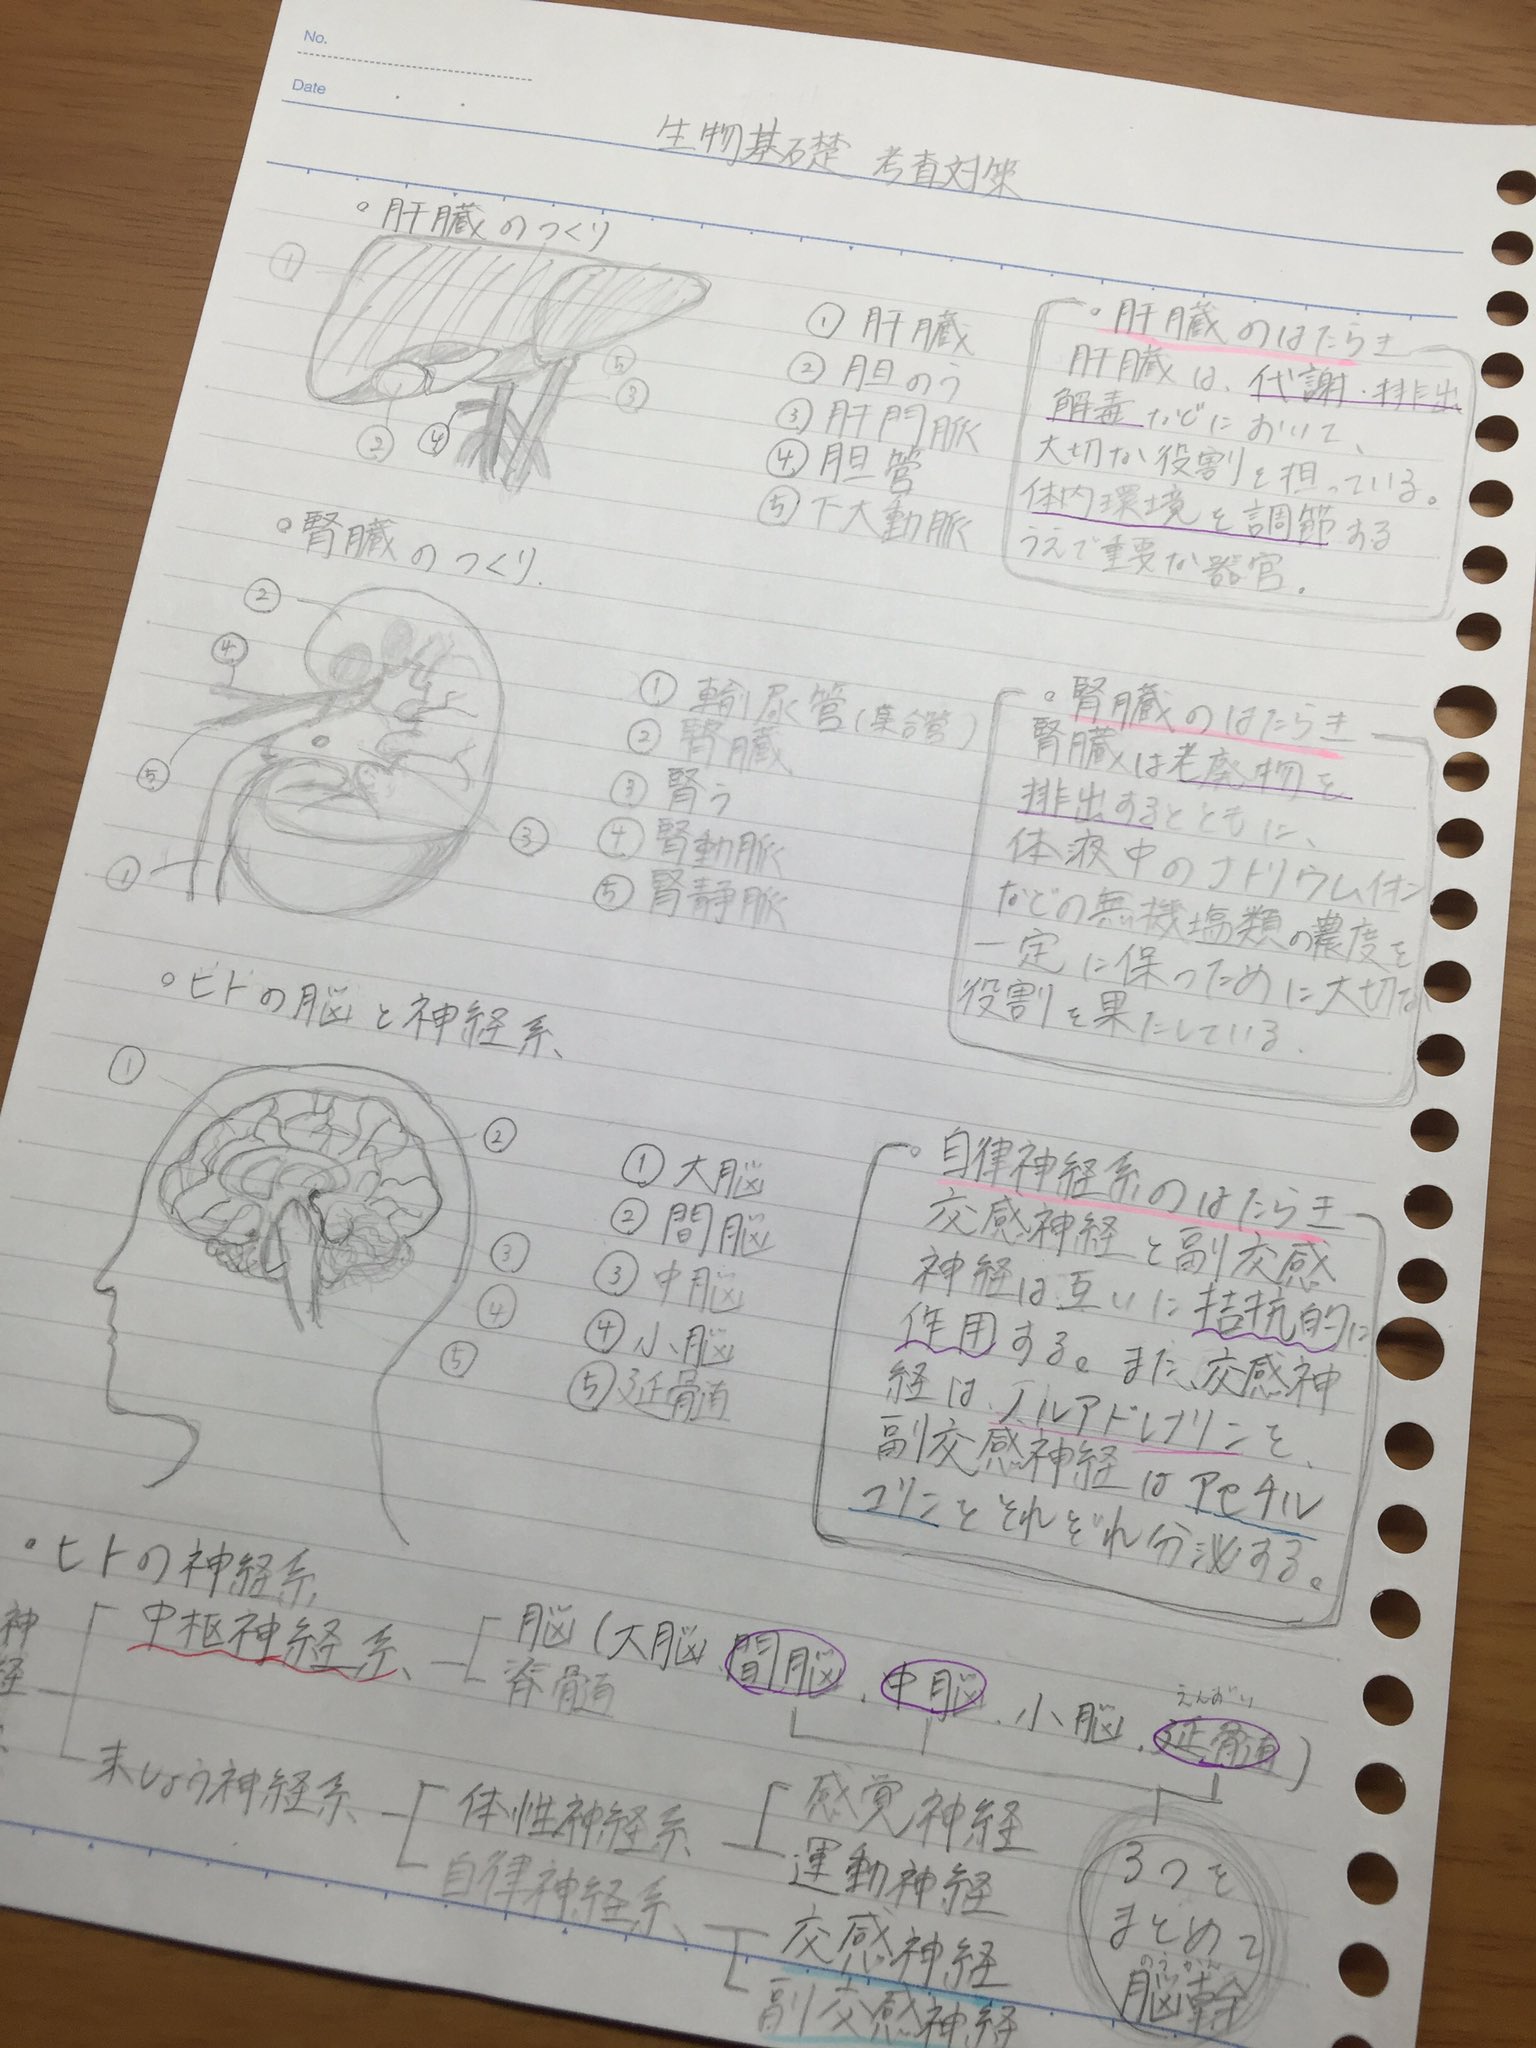 No.
Date
生物基礎 考査対策
。肝臓のつくり
①
②
④
⑤
③
① 肝臓
② 胆のう
③ 肝門脈
④ 胆管
⑤ 下大動脈
。肝臓のはたらき
肝臓は、代謝・排出
解毒などにおいて、
大切な役割を担っている。
体内環境を調節する
うえで重要な器官。
。腎臓のつくり.
②
④
⑤
③
①
① 輸尿管(集合管)
② 腎臓
③ 腎う
④ 腎動脈
⑤ 腎静脈
。腎臓のはたらき
腎臓は老廃物を
排出するとともに、
体液中のナトリウムイオン
などの無機塩類の濃度を
一定に保つために大切な
役割を果たしている.
。ヒトの脳と神経系
①
②
③
④
⑤
① 大脳
② 間脳
③ 中脳
④ 小脳
⑤ 延髄
。自律神経系のはたらき
交感神経と副交感
神経は互いに拮抗的に
作用する。また、交感神
経は、ノルアドレナリンを、
副交感神経はアセチル
コリンをそれぞれ分泌する。
。ヒトの神経系
神経
中枢神経系
脳(大脳、間脳、中脳、小脳、延髄)
えんずい
脊髄
末しょう神経系
体性神経系
感覚神経
運動神経
自律神経系
交感神経
副交感神経
3つを
まとめて
のうかん
脳幹